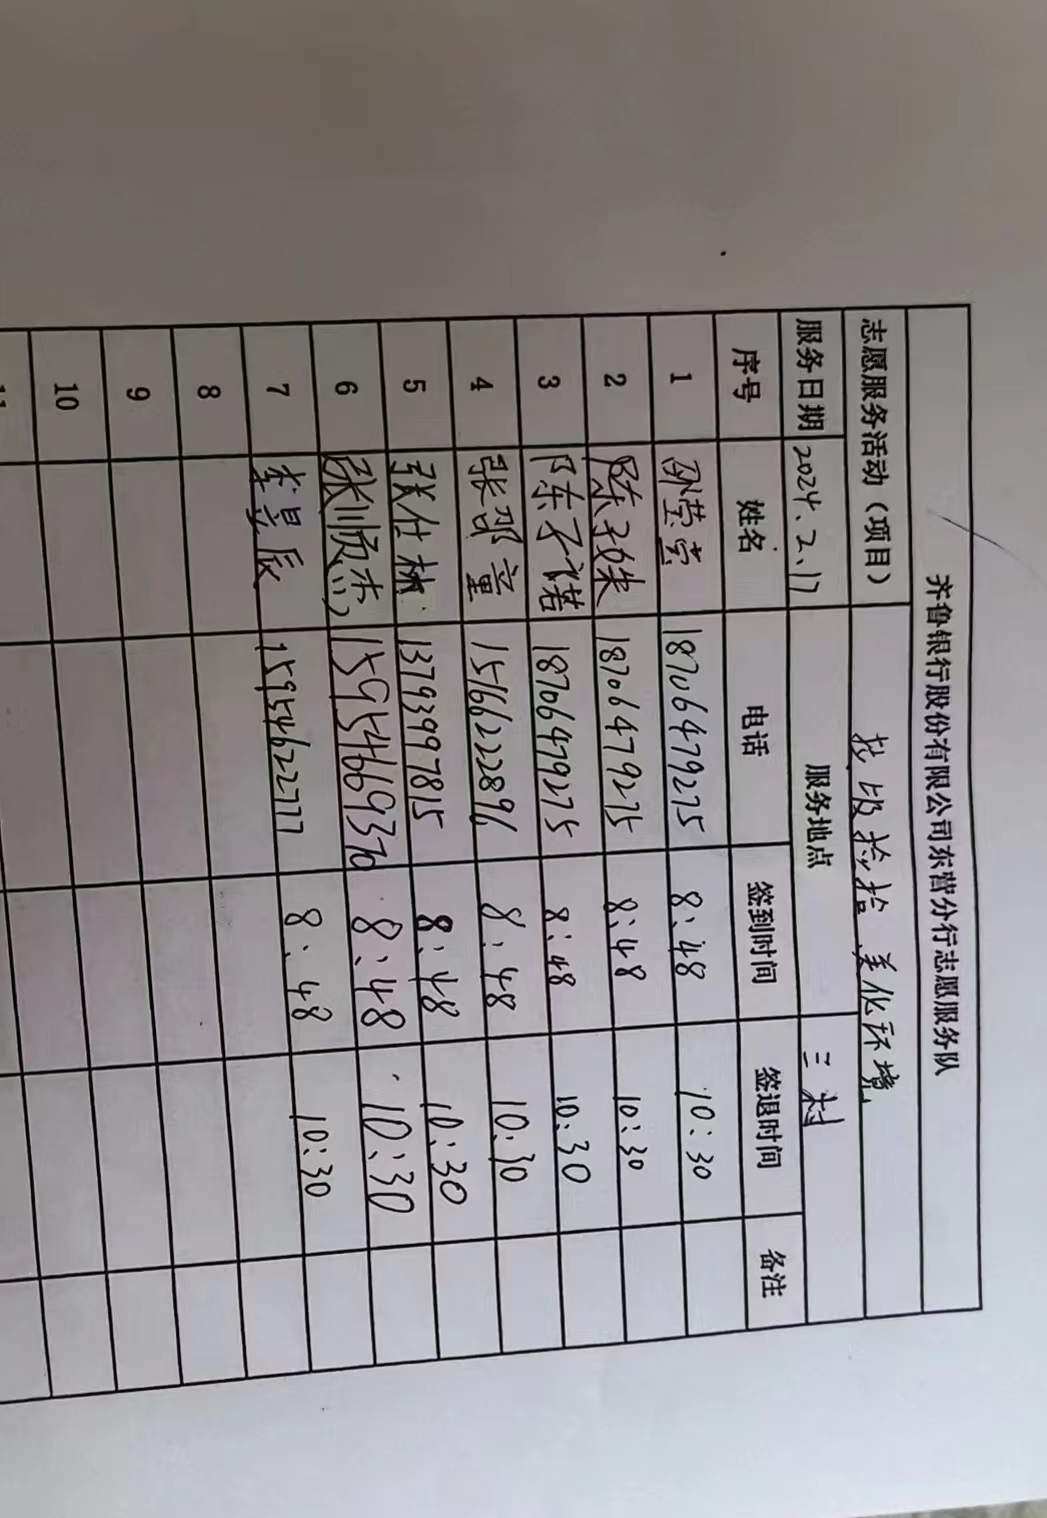 齐鲁银行股份有限公司东营分行志愿服务队
志愿服务活动（项目） 垃圾捡拾 美化环境
服务日期 2024.2.17 服务地点 三村
序号 姓名 电话 签到时间 签退时间 备注
1 莹莹 18706479275 8:48 10:30
2 陈 18706479275 8:48 10:30
3 陈子诺 18706479275 8:48 10:30
4 张邵童 15166222896 8:48 10:30
5 张仕林 13793997815 8:48 10:30
6 张顺杰 15954669370 8:48 10:30
7 李昱辰 15954622777 8:48 10:30
8
9
10
11